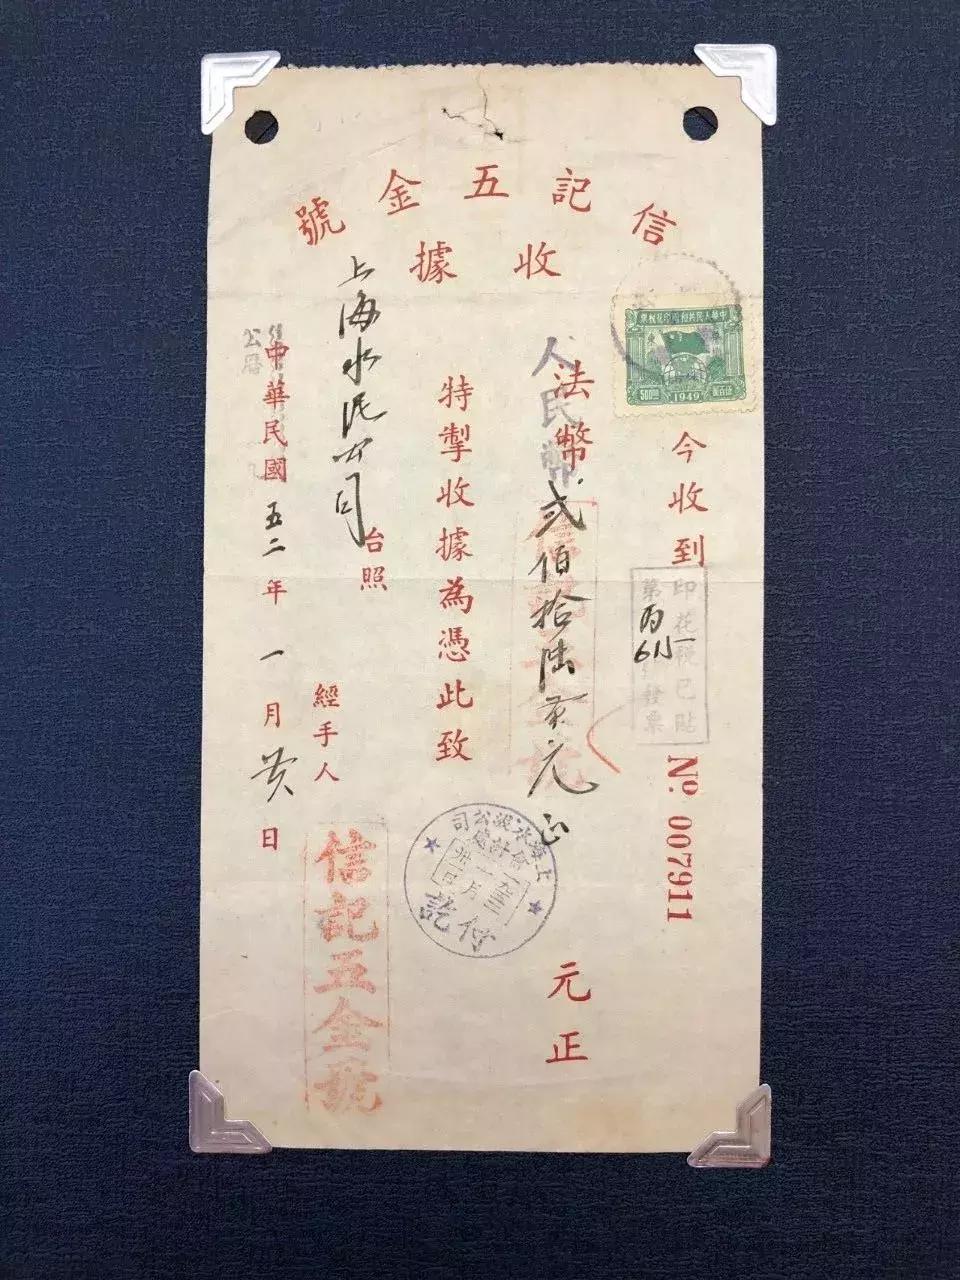 信記五金號
收據
中華人民共和國印花稅票
500圓
1949
今收到
印花稅已貼
第丙 發票
No. 007911
人民幣
法幣
弍佰拾陸萬元正
元正
信記五金號
特掣收據為憑此致
上海水泥公司
台照
經手人
信記五金號
公曆
中華民國五二年一月 日
上海水泥公司
會計處
一月
卅日
付訖